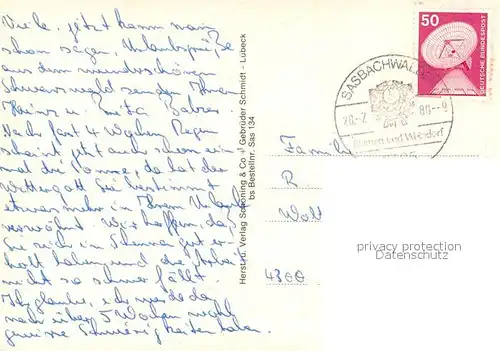 Viele, jetzt kann man
schon sagen, Urlaubsgrüße
aus dem wunderschönen
Schwarzwald senden Ihnen
Heinz u. Rita
Nach fast 4 Wochen Regen
scheint jetzt auch schon ein-
mal die Sonne, da hat der
Wettergott Sie bestimmt
etwas mehr in Ihrem Urlaub
verwöhnt. Wir hoffen, daß
Sie sich in gut er-
holt haben und die Arbeit
nicht so schwer fällt.
Ich glaube, ich werde da
nach über 5 Wochen wohl
gewisse Schwierigkeiten haben.
Herst. u. Verlag Schöning & Co + Gebrüder Schmidt - Lübeck
bs Bestellnr. Sas 134
50
DEUTSCHE BUNDESPOST
SASBACHWALDEN
28.-7. 80.--9
Blumen und Weindorf
Familie
R
Wolt
4300
privacy protection